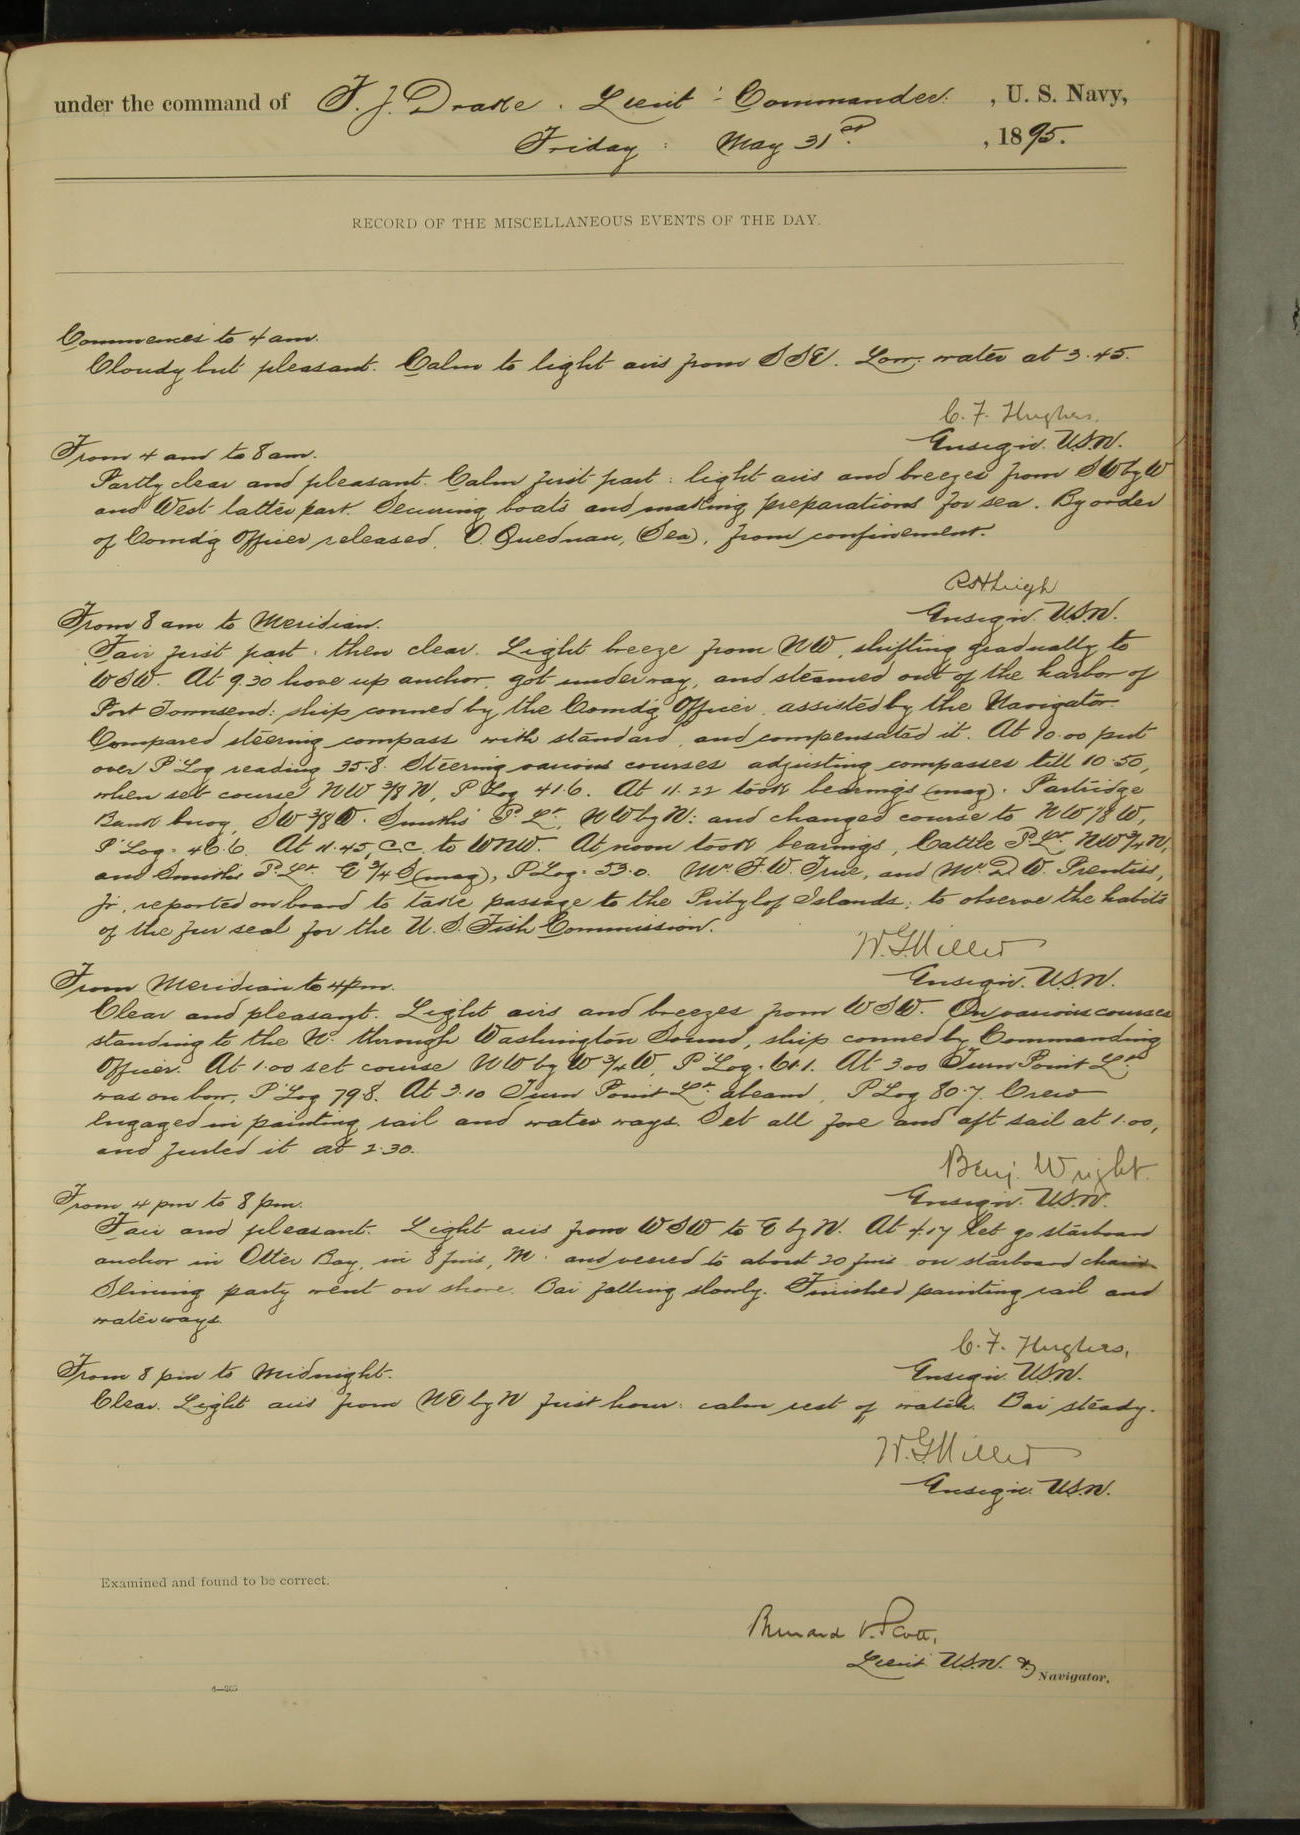 under the command of F. J. Drake. Lieut - Commander. , U. S. Navy,
Friday : May 31st. , 1895.
RECORD OF THE MISCELLANEOUS EVENTS OF THE DAY.
Commences to 4 am.
Cloudy but pleasant. Calm to light airs from SSE. Low water at 3.45.
C. F. Hughes.
Ensign. U.S.N.
From 4 am to 8 am.
Partly clear and pleasant. Calm first part : light airs and breezes from SWbyW
and West latter part. Securing boats and making preparations for sea. By order
of Comdg Officer released, O. Quednau, (Sea), from confinement.
R H Leigh
Ensign U.S.N.
From 8 am to Meridian.
Fair first part : then clear. Light breeze from NW, shifting gradually to
WSW. At 9.30 hove up anchor, got underway, and steamed out of the harbor of
Port Townsend: ship conned by the Comdg Officer, assisted by the Navigator.
Compared steering compass with standard, and compensated it. At 10.00 put
over P'Log reading 35.8. Steering various courses adjusting compasses till 10.50,
when set course NW 3/8 N, P'Log 41.6. At 11.22 took bearings (mag). Partridge
Bank buoy, SW 3/8 W. Smiths P. Lt., NWbyN: and changed course to NW 7/8 W,
P'Log = 46.6. At 11.45, C.C. to WNW. At noon took bearings, Cattle P. Lt. NW 3/4 N,
and Smiths P. Lt. E 3/4 S (mag), P'Log = 53.0. Mr. F. W. True, and Mr. D. W. Prentiss,
Jr., reported on board to take passage to the Pribylof Islands; to observe the habits
of the fur seal for the U. S. Fish Commission.
W. G. Miller
Ensign. U.S.N.
From Meridian to 4 pm.
Clear and pleasant. Light airs and breezes from WSW. On various courses
standing to the Nd. through Washington Sound, ship conned by Commanding
Officer. At 1.00 set course NW by W 3/4 W, P'Log = 61.1. At 3.00 Turn Point Lt.
was on bow, P'Log 79.8. At 3.10 Turn Point Lt. abeam, P'Log 80.7. Crew
engaged in painting rail and water ways. Set all fore and aft sail at 1.00,
and furled it at 2.30.
Benj. Wright.
Ensign. U.S.N.
From 4 pm to 8 pm.
Fair and pleasant. Light airs from WSW to E by N. At 4.17 let go starboard
anchor in Otter Bay, in 8 fms, M. and veered to about 20 fms on starboard chain
Seining party went on shore. Bar falling slowly. Finished painting rail and
waterways.
C. F. Hughes,
Ensign U.S.N.
From 8 pm to Midnight.
Clear. Light airs from NE by N first hour: calm rest of watch. Bar steady.
W. G. Miller
Ensign. U.S.N.
Examined and found to be correct.
Bernard O. Scott,
Lieut U.S.N. & Navigator.